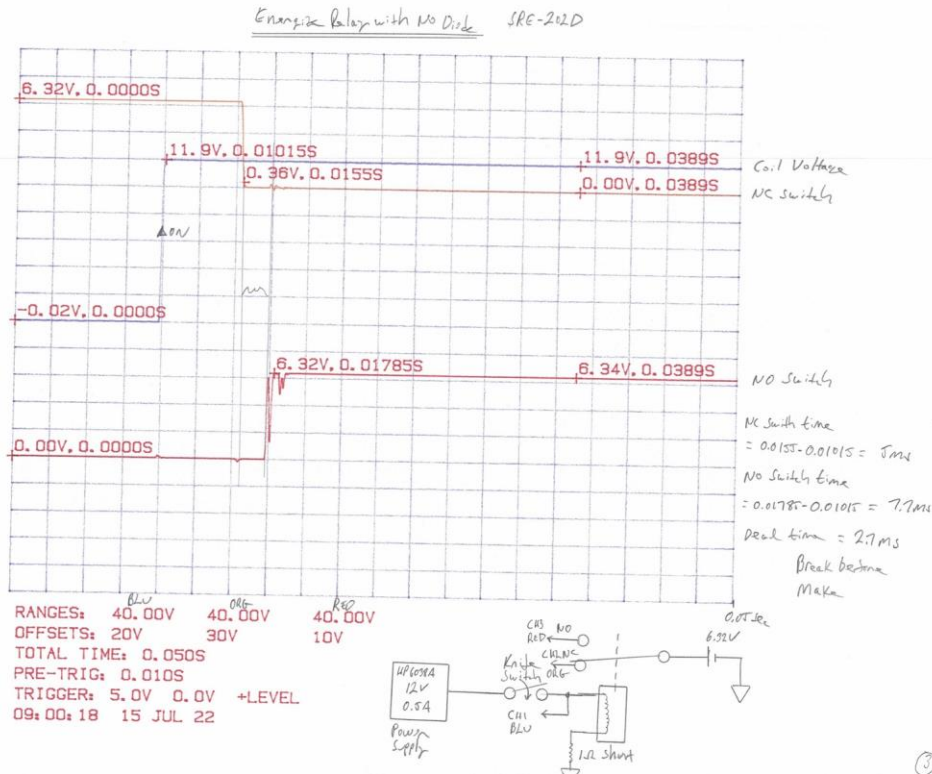 Energize Relay with No Diode SRE-202D
6.32V, 0.0000S
11.9V, 0.01015S
11.9V, 0.0389S
Coil Voltage
0.36V, 0.0155S
0.00V, 0.0389S
NC switch
ON
-0.02V, 0.0000S
6.32V, 0.01785S
6.34V, 0.0389S
NO Switch
0.00V, 0.0000S
NC swith time
= 0.0155-0.01015 = 5ms
NO Switch time
= 0.01785-0.01015 = 7.7ms
Dead time = 2.7ms
Break before
Make
BLU ORG RED
RANGES: 40.00V 40.00V 40.00V
0.05 sec
OFFSETS: 20V 30V 10V
TOTAL TIME: 0.050S
PRE-TRIG: 0.010S
TRIGGER: 5.0V 0.0V +LEVEL
09:00:18 15 JUL 22
CH3 NO
RED
CH2 NC
ORG
6.32V
Knife
Switch
HP6038A
12V
0.5A
CH1
BLU
Power
Supply
1Ω Shunt
3